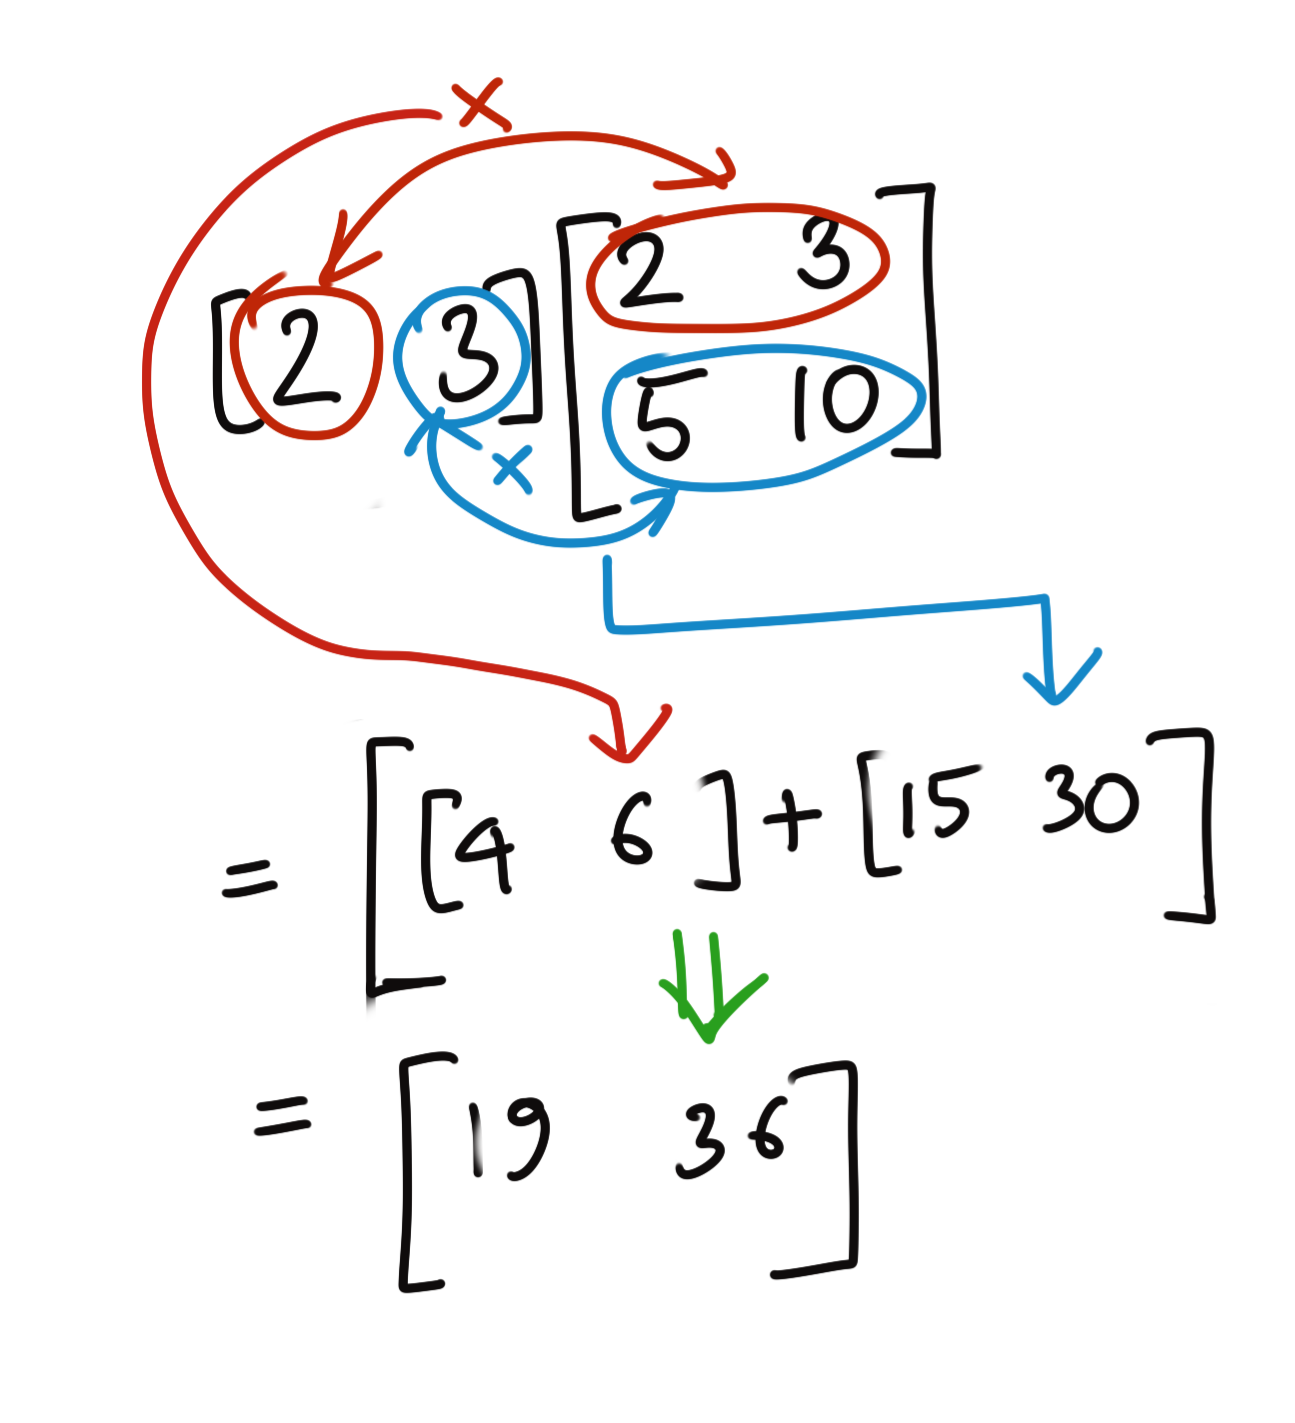 ×
[2 3] [2 3
5 10]
×
= [[4 6] + [15 30]
= [19 36]